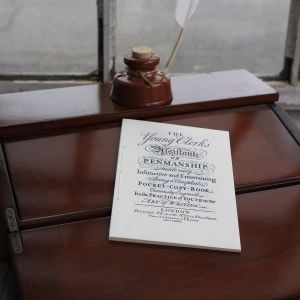 THE
Young Clerks
Assistant
OR
PENMANSHIP
made easy
Instructive and Entertaining
Being a Compleat
POCKET-COPY-BOOK
Curiously Engrav'd
For the PRACTICE of YOUTH in the
ART of WRITING
LONDON